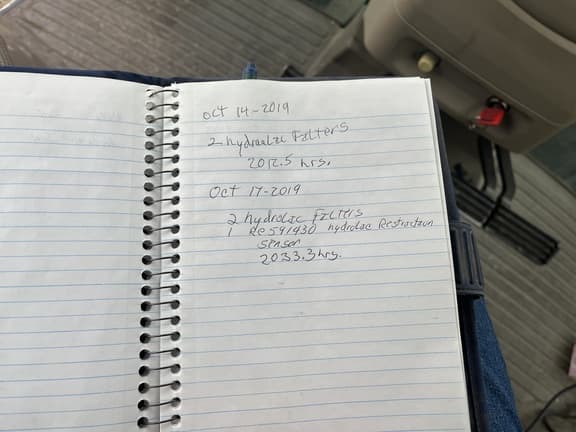 Oct 14-2019
2 hydraulic Filters
2012.5 hrs.
Oct 17-2019
2 hydrolic Filters
1 Re591930 hydrolic Restriction
Sensor
2033.3 hrs.